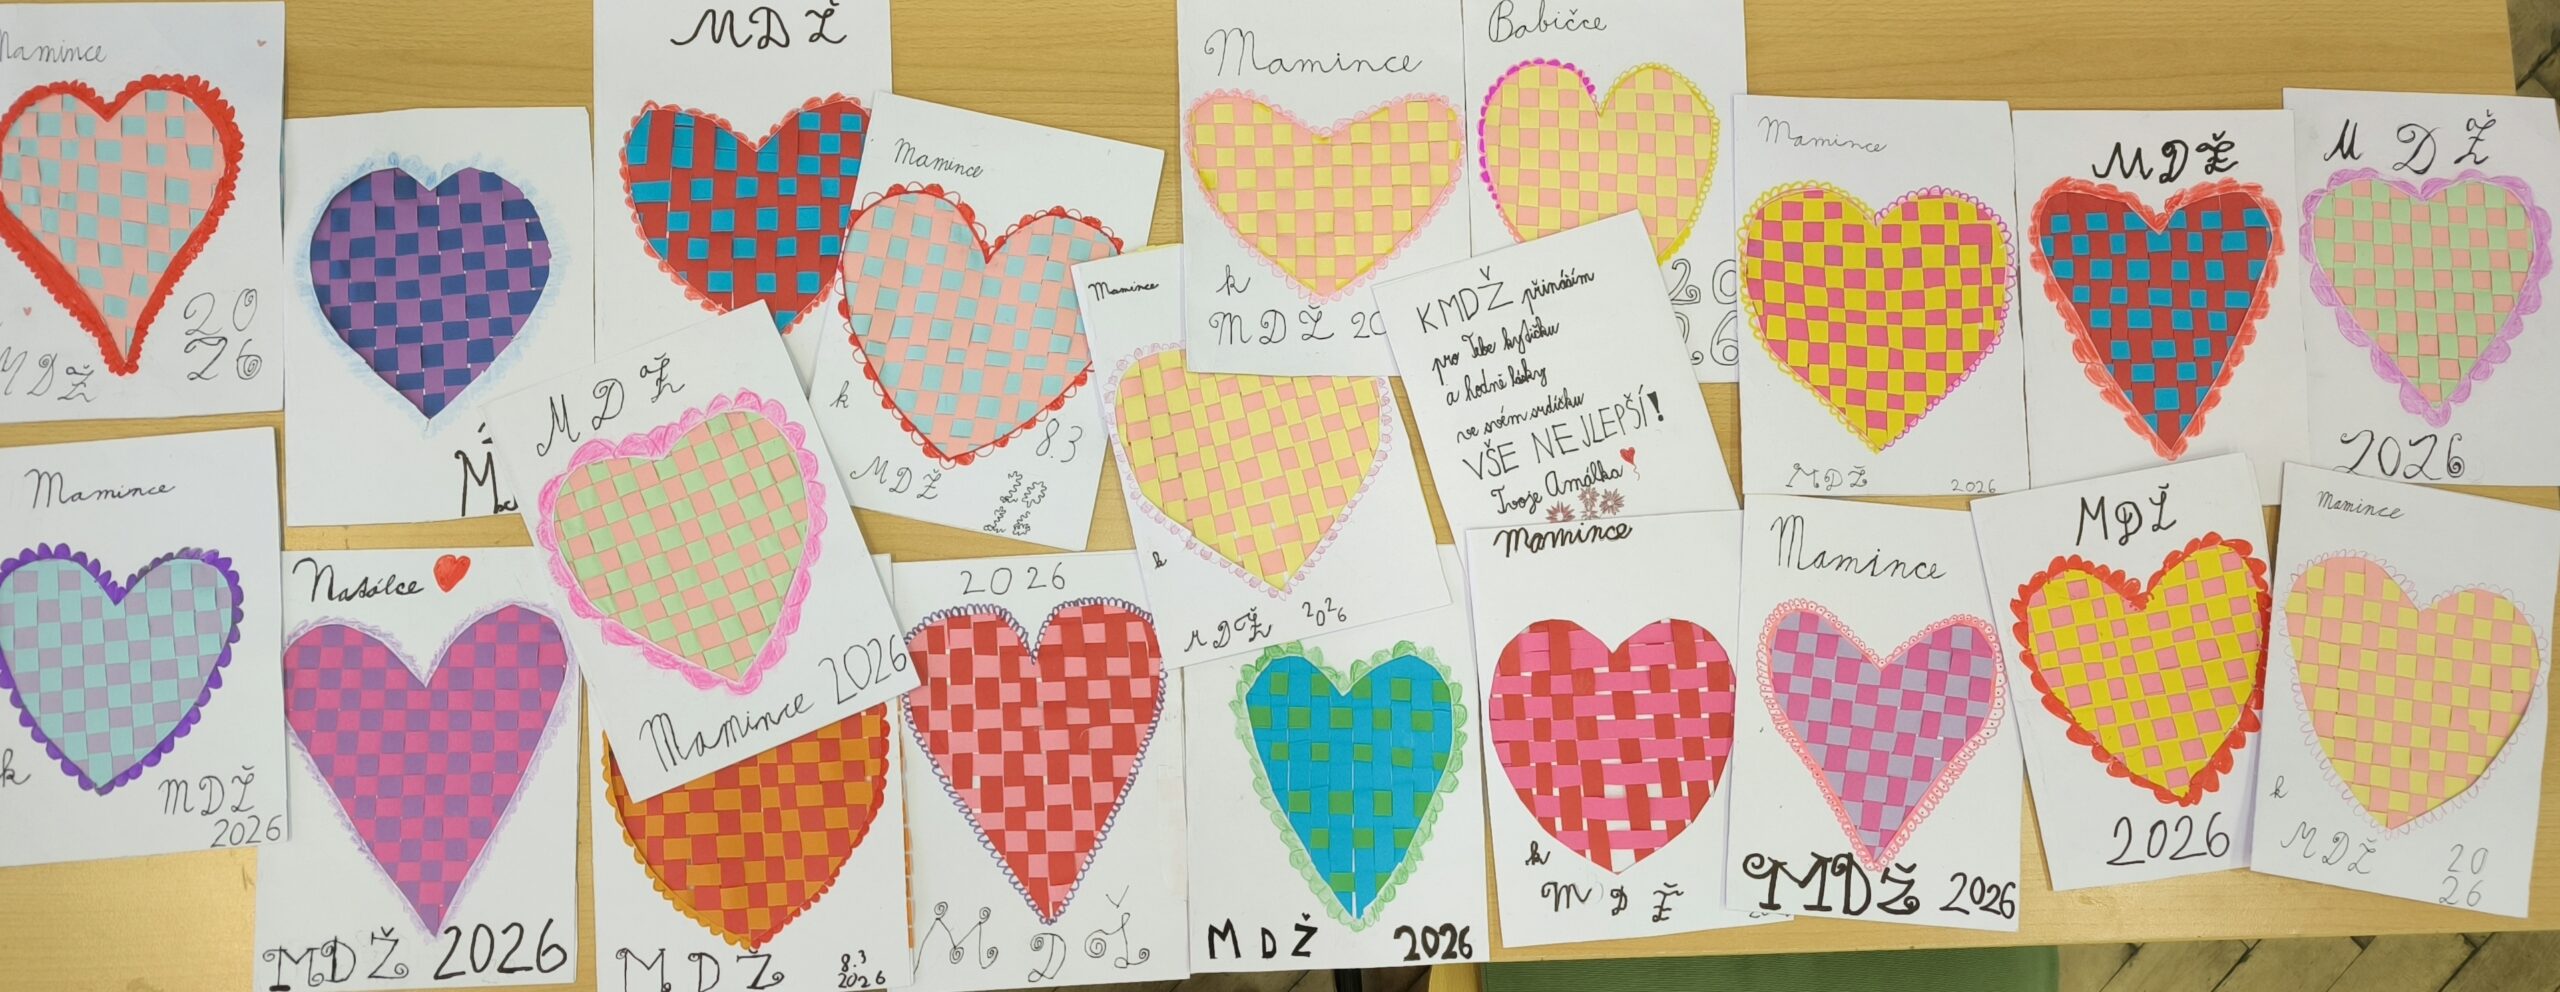 Mamince
20
26
MDŽ
MDŽ
Mamince
k
MDŽ
8.3
Mamince
k
MDŽ 20
Babičce
20
26
Mamince
MDŽ
2026
MDŽ
MDŽ
2026
MDŽ
Mamince 2026
Mamince
k
MDŽ
2026
K MDŽ přináším
pro Tebe kytičku
a hodně lásky
ve svém srdíčku
VŠE NEJLEPŠÍ!
Tvoje Amálka
Mamince
k
MDŽ
2026
Natálce
MDŽ 2026
MDŽ
8.3
2026
2026
MDŽ
MDŽ 2026
Mamince
k
MDŽ
Mamince
MDŽ 2026
MDŽ
2026
Mamince
k
MDŽ
20
26